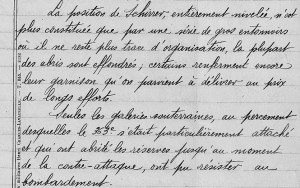 La position de Schirrer, entièrement nivelée, n'est
plus constituée que par une série de gros entonnoirs
où il ne reste plus trace d'organisation, la plupart
des abris sont effondrés, certains renferment encore
leur garnison qu'on parvient à délivrer au prix
de longs efforts.
Seules les galeries souterraines, au percement
desquelles le s'était particulièrement attaché
et qui ont abrité les réserves jusqu'au moment
de la contre-attaque, ont pu résister au
bombardement.